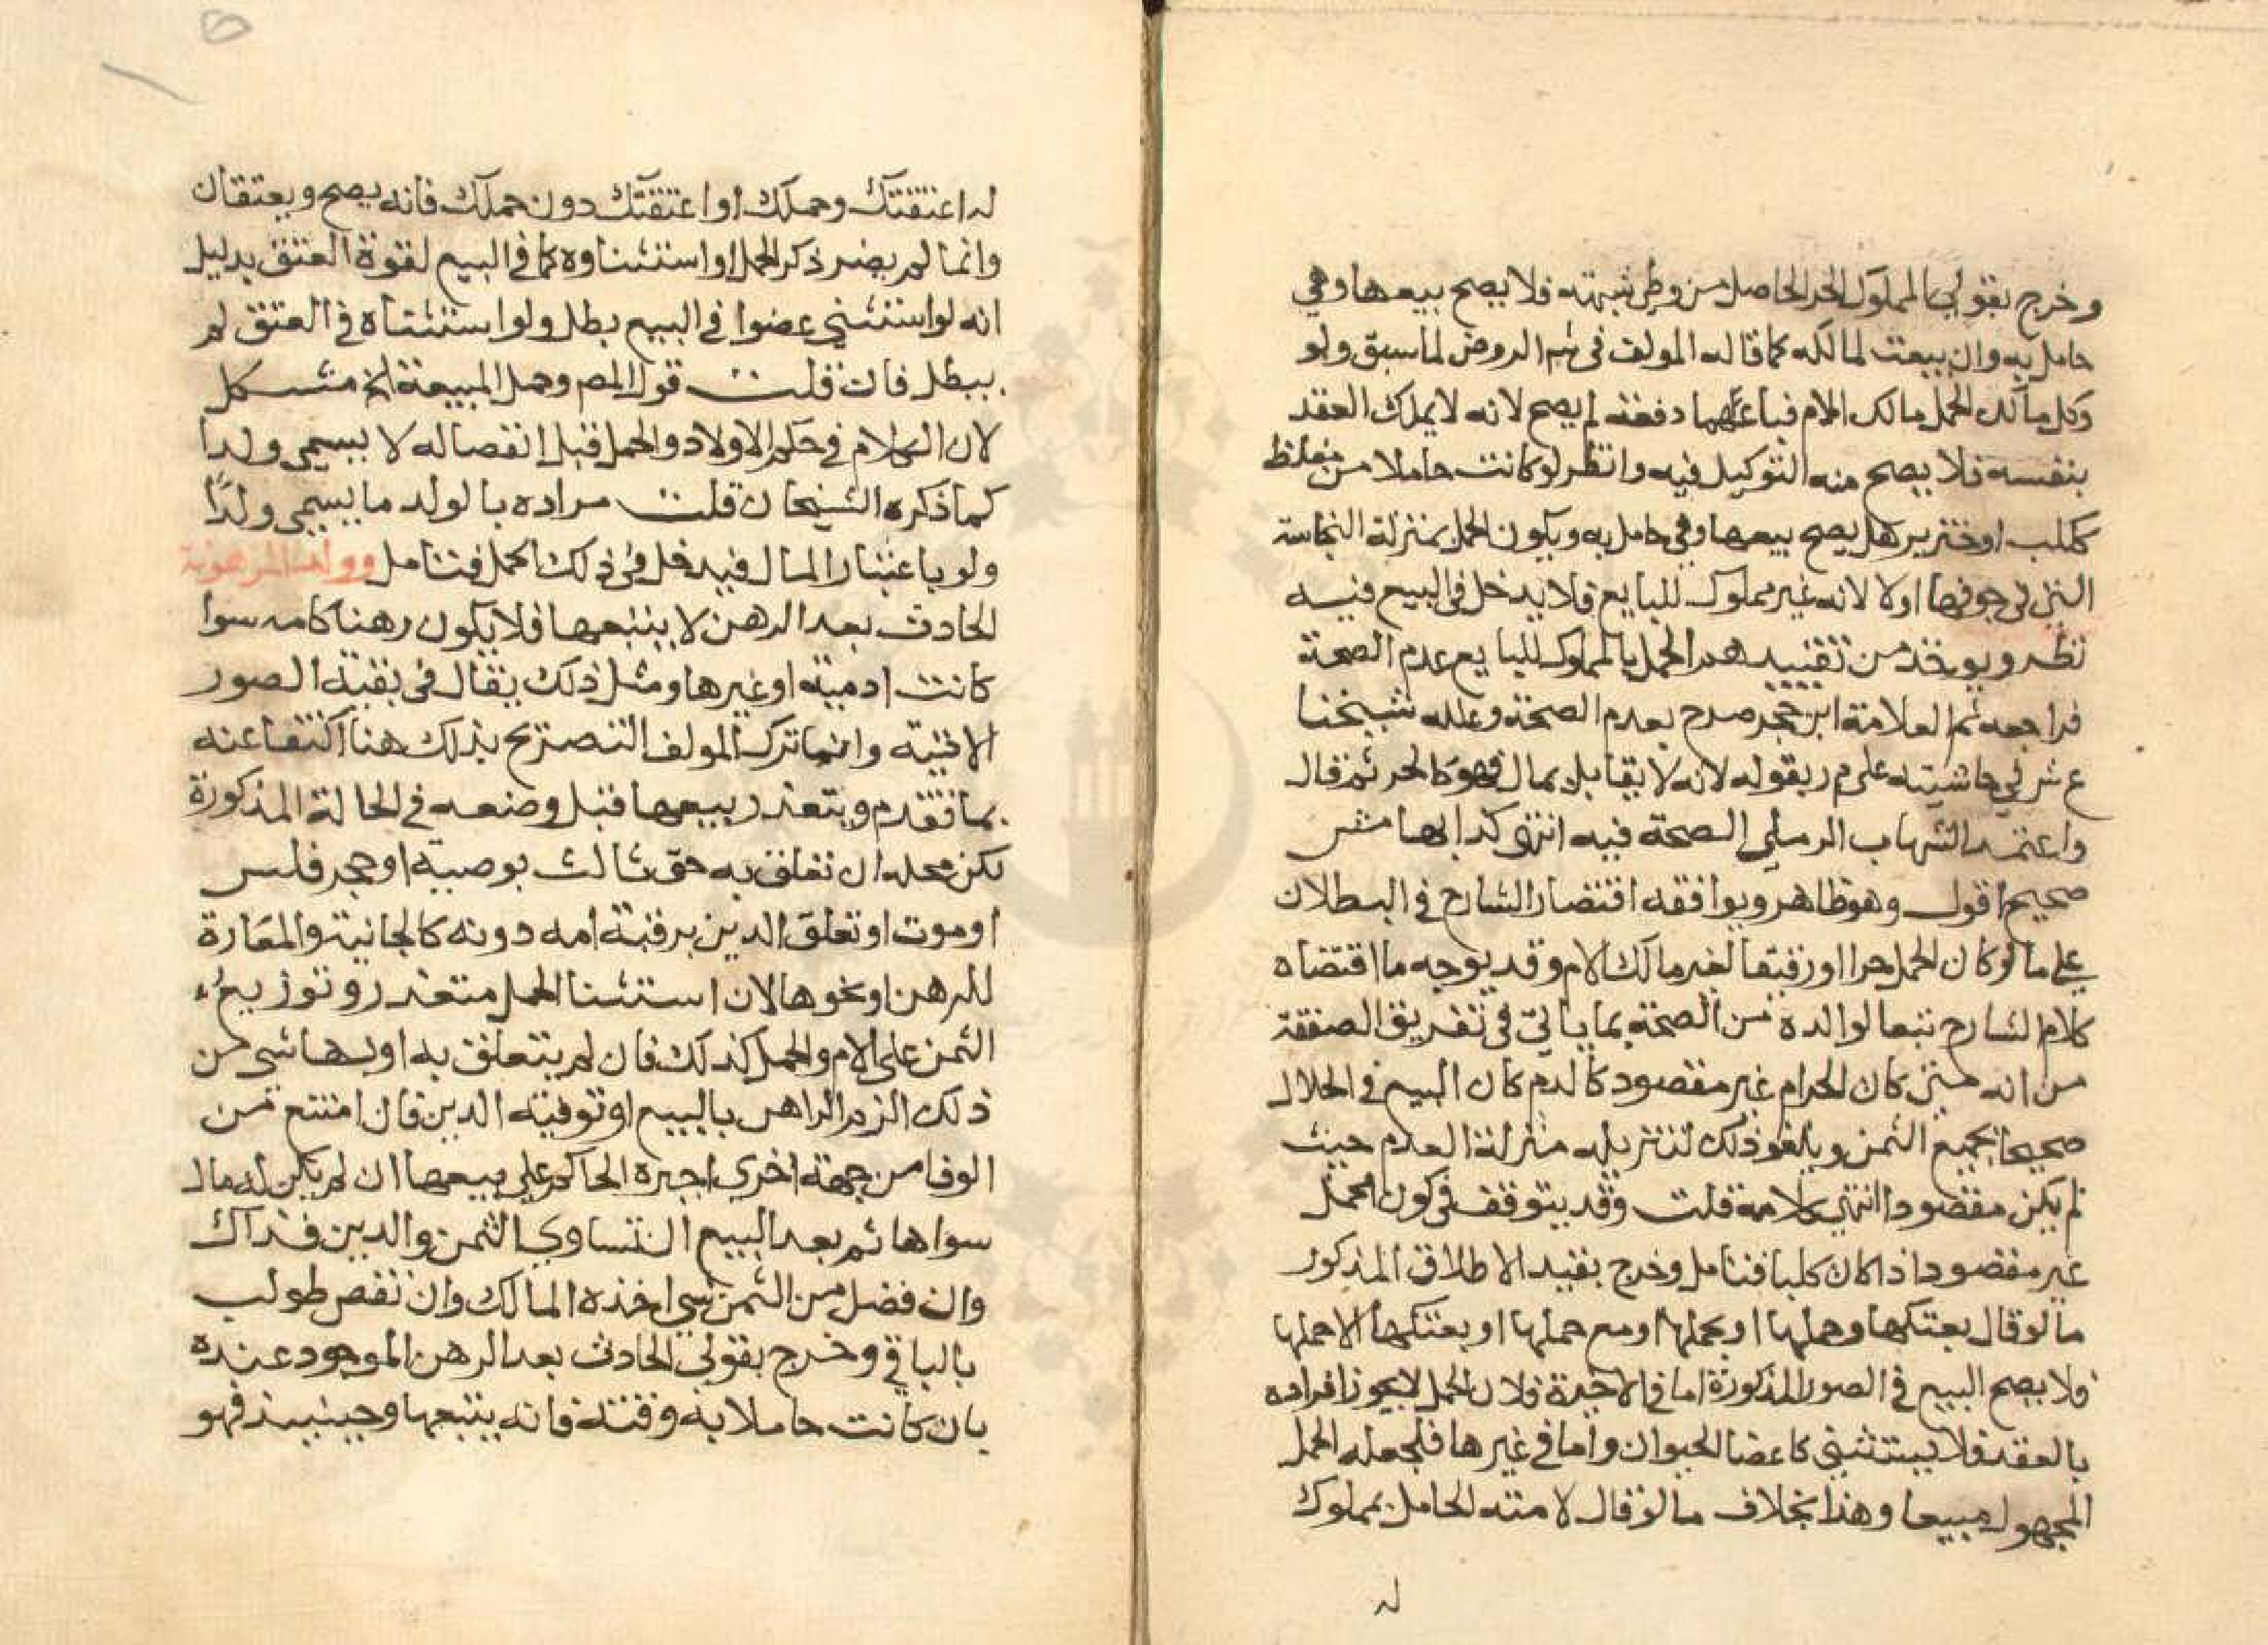 وخرج بقولي المملوك الحر الحاصل من وطئ شبهة فلا يصح بيعها وهي
حامل به وان بيعت لمالكه كما قاله المولف في شم الروض لما سبق ولو
وكل مالك الحمل مالك الام فباعهما دفعة لم يصح لانه لا يملك العقد
بنفسه فلا يصح منه التوكيل فيه وانظر لو كانت حاملا من مغلظ
ككلب او خنزير هل يصح بيعها وهي حامل به ويكون الحمل بمنزلة النجاسة
التي في جوفها اولا لانه غير مملوك للبايع فلا يدخل في البيع فيه
نظر ويوخذ من تقييد هم الحمل بالمملوك للبايع عدم الصحة
فراجعه ثم العلامة ابن حجر صرح بعدم الصحة وعلله شيخنا
ع ش في حاشيته على م ر بقوله لانه لا يقابل بمال فهو كالحر ثم قال
واعتمد الشهاب الرملي الصحة فيه انتهى كذا بهامش
صحيح اقول وهو ظاهر ويوافقه اقتصار الشارح في البطلان
على ما لو كان الحمل حرا او رقيقا لغير مالك الام وقد يوجه ما اقتضاه
كلام الشارح تبعا لوالده من الصحة بما ياتي في تفريق الصفقة
من انه متى كان الحرام غير مقصود كالدم كان البيع في الحلال
صحيحا بجميع الثمن ويلغو ذلك لتنزيله منزلة العدم حيث
لم يكن مقصودا انتهى كلامه قلت وقد يتوقف في كون الحمل
غير مقصود اذا كان كلبا فتامل وخرج بقيد الاطلاق المذكور
ما لو قال بعتكها وحملها او بحملها او مع حملها او بعتكها الا حملها
فلا يصح البيع في الصور المذكورة اما في الاخيرة فلان الحمل لا يجوز افراده
بالعقد فلا يستثنى كاعضا الحيوان واما في غيرها فلجعله الحمل
المجهول مبيعا وهذا بخلاف ما لو قال لامته الحامل بمملوك
له
له اعتقتك وحملك او اعتقتك دون حملك فانه يصح ويعتقان
وانما لم يضر ذكر الحمل او استثناوه كما في البيع لقوة العتق بدليل
انه لو استثنى عضوا في البيع بطل ولو استثناه في العتق لم
يبطل فان قلت قول المص وحمل المبيعة الخ مشكل
لان الكلام في حكم الاولاد والحمل قبل انفصاله لا يسمى ولدا
كما ذكره الشيخان قلت مراده بالولد ما يسمى ولدًا
ولو باعتبار المال فيدخل في ذلك الحمل فتامل وولد المرهونة
الحادث بعد الرهن لا يتبعها فلا يكون رهنا كامه سوا
كانت ادمية او غيرها ومثل ذلك يقال في بقية الصور
الاتية وانما ترك المولف التصريح بذلك هنا اكتفا عنه
بما تقدم ويتعذر بيعها قبل وضعه في الحالة المذكورة
لكن محله ان تعلق به حق ثالث بوصية او حجر فلس
او موت او تعلق الدين برقبة امه دونه كالجانية والمعارة
للرهن او نحوها لان استثنا الحمل متعذر وتوزيع
الثمن على الام والحمل كذلك فان لم يتعلق به او بها شي من
ذلك الزم الراهن بالبيع او توفية الدين فان امتنع من
الوفا من جهة اخرى اجبره الحاكم على بيعها ان لم يكن له مال
سواها ثم بعد البيع ان تساوى الثمن والدين فذاك
وان فضل من الثمن شي اخذه المالك وان نقص طولب
بالباقي وخرج بقولي الحادث بعد الرهن الموجود عنده
بان كانت حاملا به وقته فانه يتبعها وحينيذ فهو